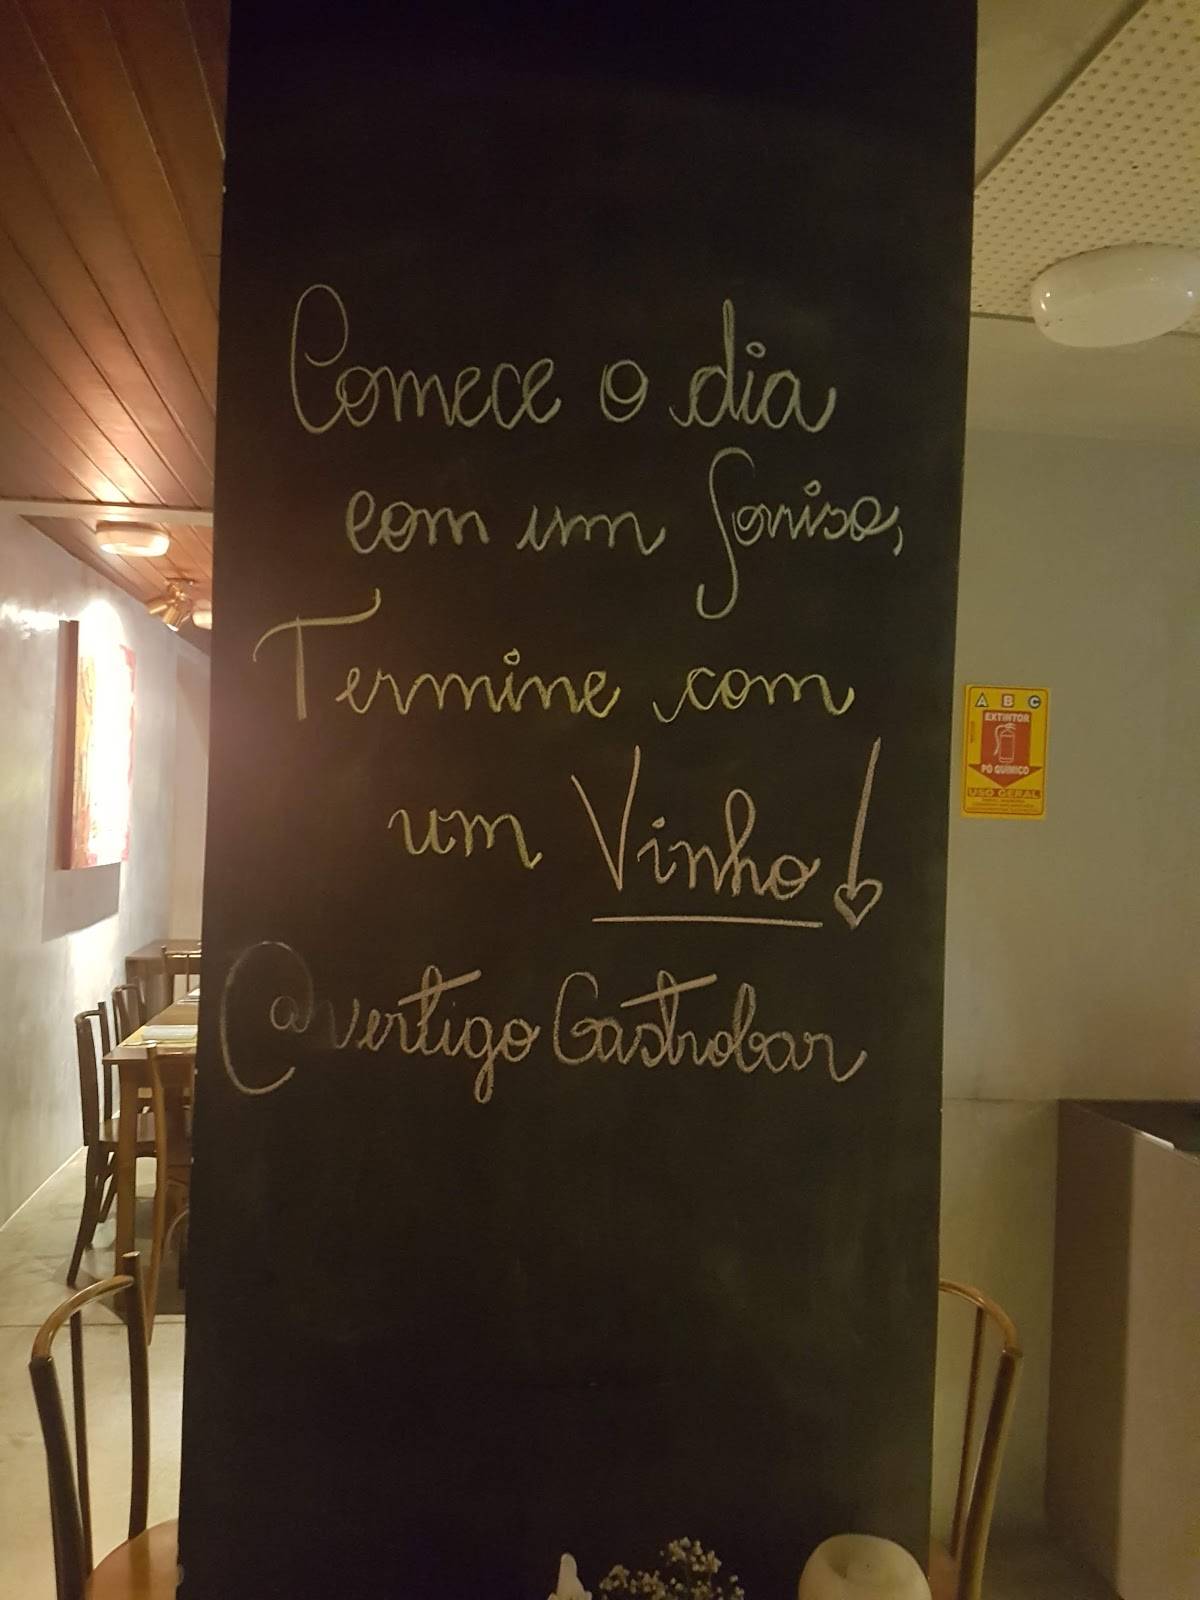 Comece o dia
com um Sorriso,
Termine com
um Vinho!
@vertigo Gastrobar
A B C
EXTINTOR
PÓ QUÍMICO
USO GERAL